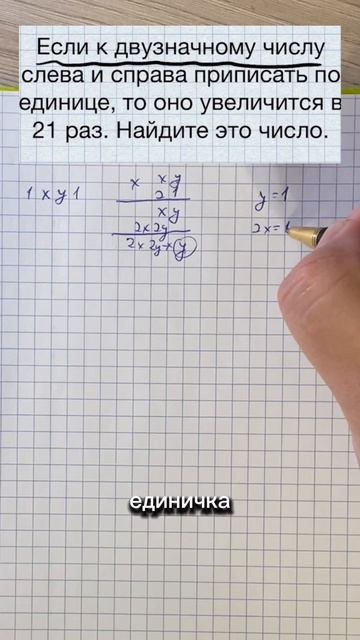 Если к двузначному числу
слева и справа приписать по
единице, то оно увеличится в
21 раз. Найдите это число.
1 x y 1
x xy
21
xy
2x2y
2x 2y+x y
y=1
2x=
единичка